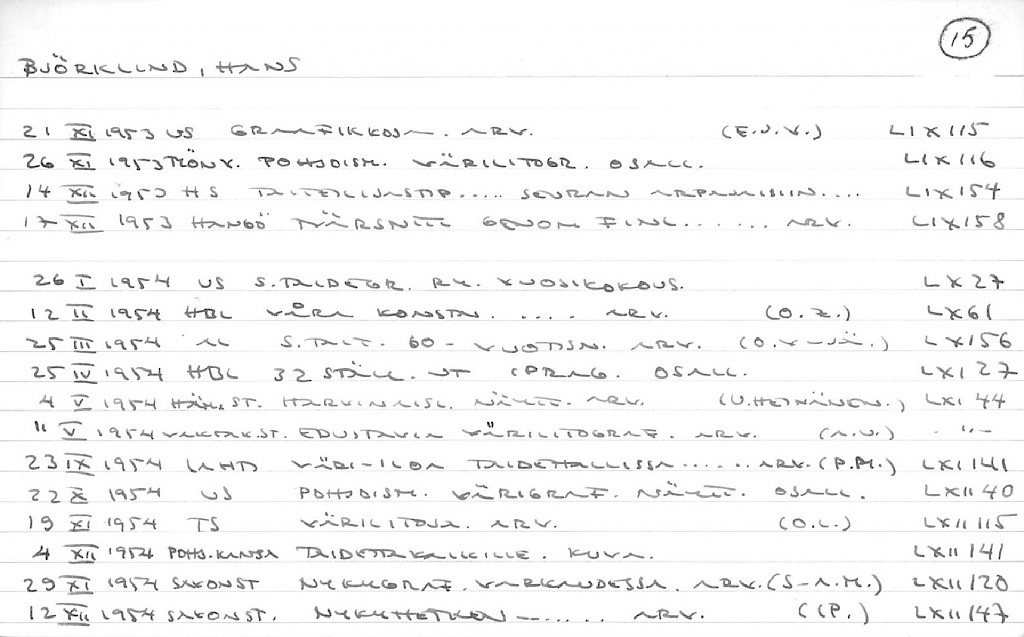 15
BJÖRKLUND, HANS
21 XI 1953 US GRAAFIKKOJA. ARV. (E.J.V.) LIX 115
26 XI 1953 TKÖNY. POHJOISM. VÄRILITOGR. OSALL. LIX 116
14 XII 1953 HS TAITEILIJASTIP..... SEURAN ARPAJAISIIN.... LIX 154
17 XII 1953 HANGÖ TVÄRSNITT GENOM FINL....... ARV. LIX 158
26 I 1954 US S.TAIDEGR. RY. VUOSIKOKOUS. LX 27
12 II 1954 HBL VÅRA KONSTN. .... ARV. (O.K.) LX 61
25 III 1954 AL S.TAIT. 60-VUOTISN. ARV. (O.V-JÄ.) LX 156
25 IV 1954 HBL 32 STÄLL. UT I PRAG. OSALL. LXI 27
4 V 1954 HÄM.ST. HARVINAISL. NÄYTT. ARV. (U.HEINÄNEN.) LXI 44
" V 1954 VALKEAK.ST. EDUSTAVIA VÄRILITOGRAF. ARV. (A.U.) -"-
23 IX 1954 LAHTI VÄRI-ILOA TAIDEHALLISSA...... ARV. (P.M.) LXI 141
22 X 1954 US POHJOISM. VÄRIGRAF. NÄYTT. OSALL. LXII 40
19 XI 1954 TS VÄRILITOJA. ARV. (O.L.) LXII 115
4 XII 1954 POHJ.KANSA TAIDETTA KAIKILLE. KUVA. LXII 141
29 XI 1954 SAVONST NYKYGRAF. VARKAUDESSA. ARV. (S-A.M.) LXII 120
12 XII 1954 SAVONST. NYKYHETKEN ....... ARV. (I.P.) LXII 147